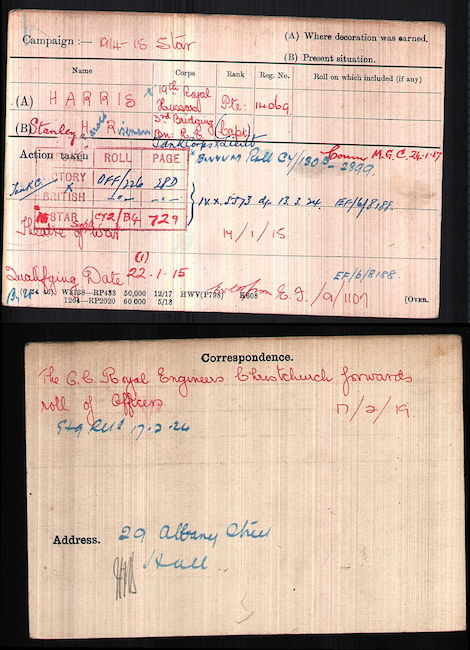 Campaign :— 1914-15 Star
(A) Where decoration was earned.
(B) Present situation.
Name Corps Rank Reg. No. Roll on which included (if any)
(A) HARRIS × 19th Royal Hussars Pte. 14069
(B) Stanley H Harold 3rd Bridging Bn: R.E. Capt
Tank Corps Lieut
Action taken ROLL PAGE
Comm M.G.C. 24-1-17
VICTORY OFF/226 28D
BRITISH -do- -do-
STAR C/2/B4 729
IV.X. 5573 dp 13.3.24. EF/6/8188.
Theatre of War (1) 14/1/15
Qualifying Date 22-1-15
EF/6/8188.
(6 34 46) W2133—RP433 50,000 12/17 HWV(P798) K608
1264—RP2020 60 000 5/18
E.F. /9/1107
[OVER.
Correspondence.
The O.C. Royal Engineers Christchurch forwards
roll of Officers 17/2/19
17-2-24
Address. 29 Albany Street
Hull